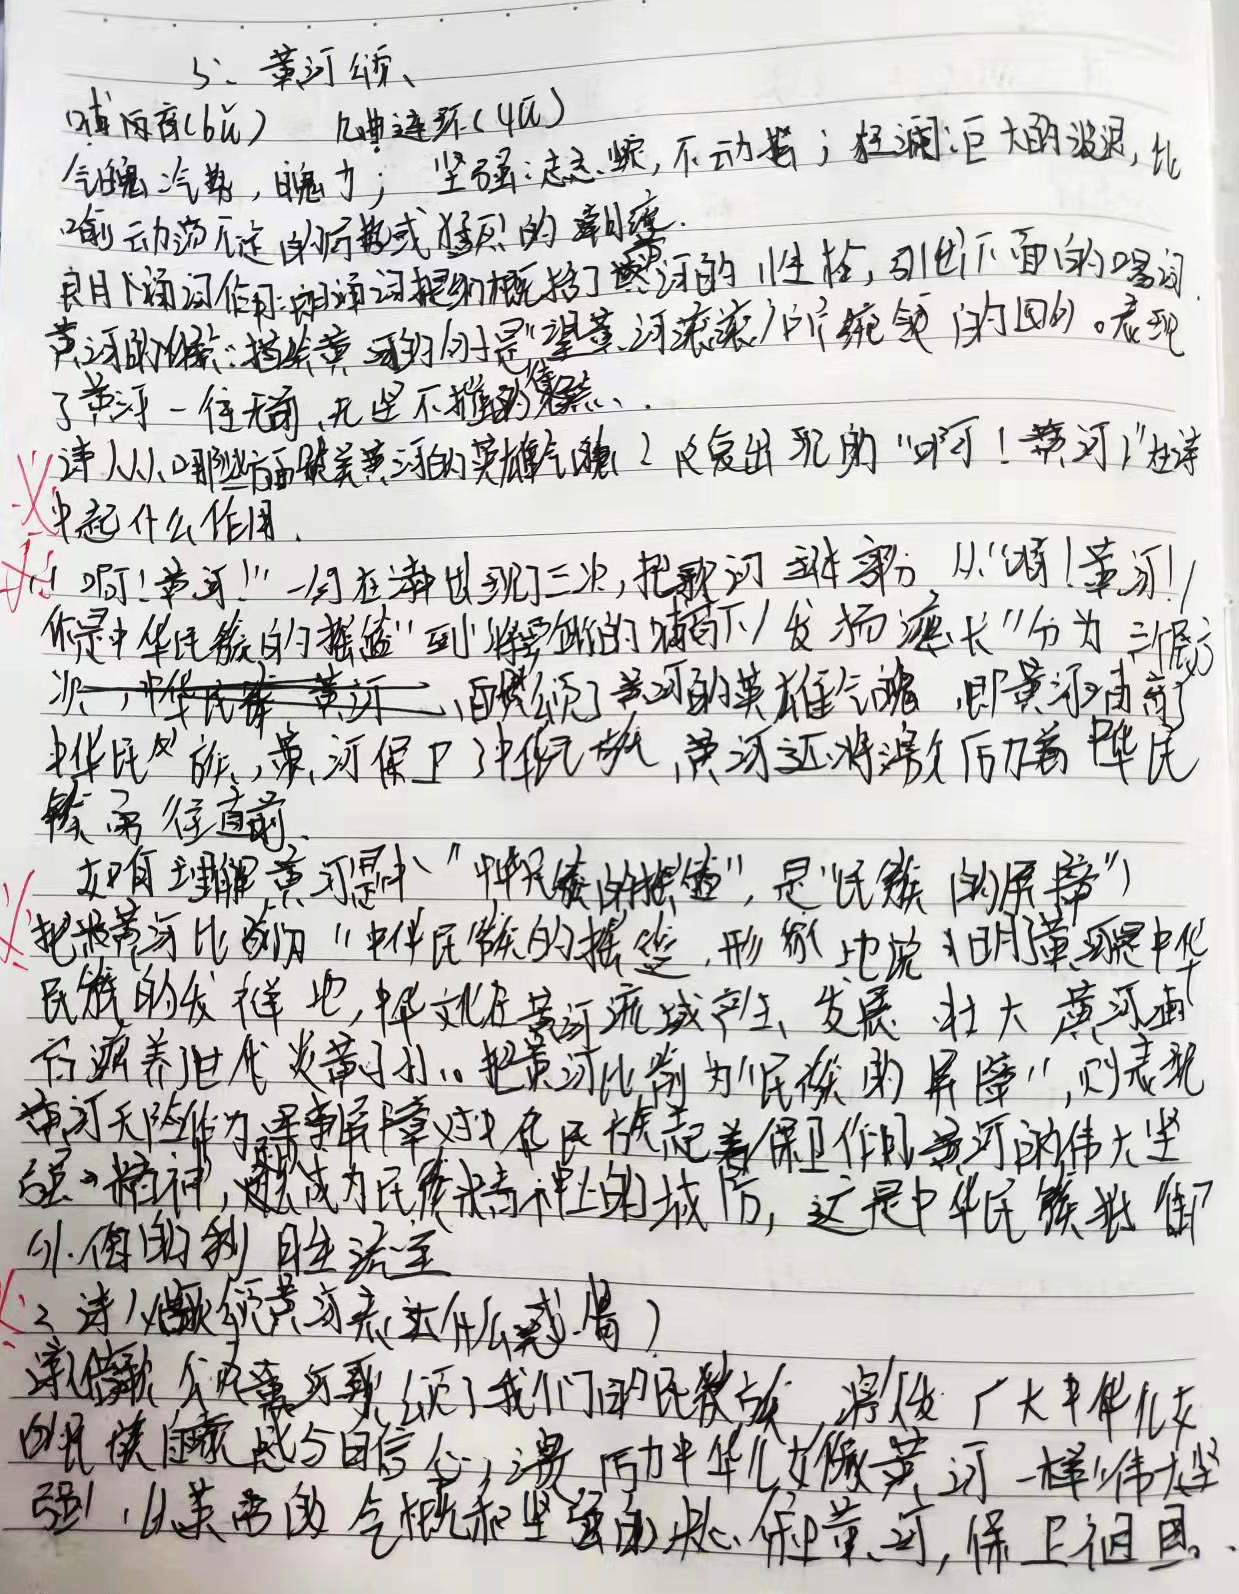 5、黄河颂、
哺育(bǔ) 九曲连环(qū)
气魄:气势,魄力; 坚强:意志坚定,不动摇;狂澜:巨大的波浪,比
喻动荡不定的局势或猛烈的潮流.
朗诵词作用:朗诵词概括了黄河的性格,引出下面的唱词.
黄河的:描绘黄河的句子是"望黄河滚滚"统领的四句。表现
了黄河一往无前、无坚不摧的
诗人从哪些方面赞美黄河的英雄气魄?反复出现的"啊!黄河!"在诗
中起什么作用.
"啊!黄河!"一句在诗中出现了三次,把歌词主体部分从"啊!黄河!/
你是中华民族的摇篮"到"将要在你的哺育下/发扬滋长"分为三个层
次,,赞颂了黄河的英雄气魄,即黄河哺育了
中华民族,黄河保卫了中华民族,黄河还将激励着中华民
族勇往直前.
如何理解黄河是"中华民族的摇篮",是"民族的屏障"
把黄河比喻为"中华民族的摇篮,形象地说明黄河是中华
民族的发祥地,中华文化在黄河流域产生、发展、壮大 黄河
滋养了世代炎黄子孙。把黄河比喻为"民族的屏障",则表现
黄河天险作为军事屏障对中华民族起着保卫作用 黄河的伟大坚
强精神,成为民族精神上的城防,这是中华民族抵御
外侮的
2 诗人歌颂黄河表达什么感情?
歌颂黄河歌颂了我们的民族,激发广大中华儿女
的民族自豪感与自信心,激励中华儿女像黄河一样"伟大坚
强",以英勇的气概和坚强的决心保卫黄河,保卫祖国。